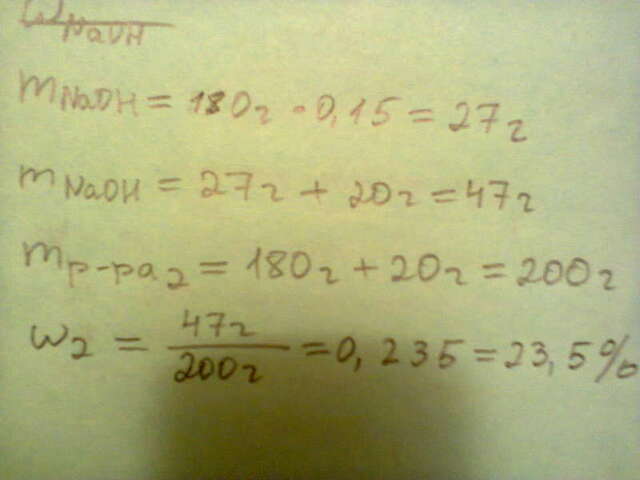 ω NaOH
m NaOH = 180г · 0,15 = 27г
m NaOH = 27г + 20г = 47г
m р-ра 2 = 180г + 20г = 200г
ω2 = 47г / 200г = 0,235 = 23,5%